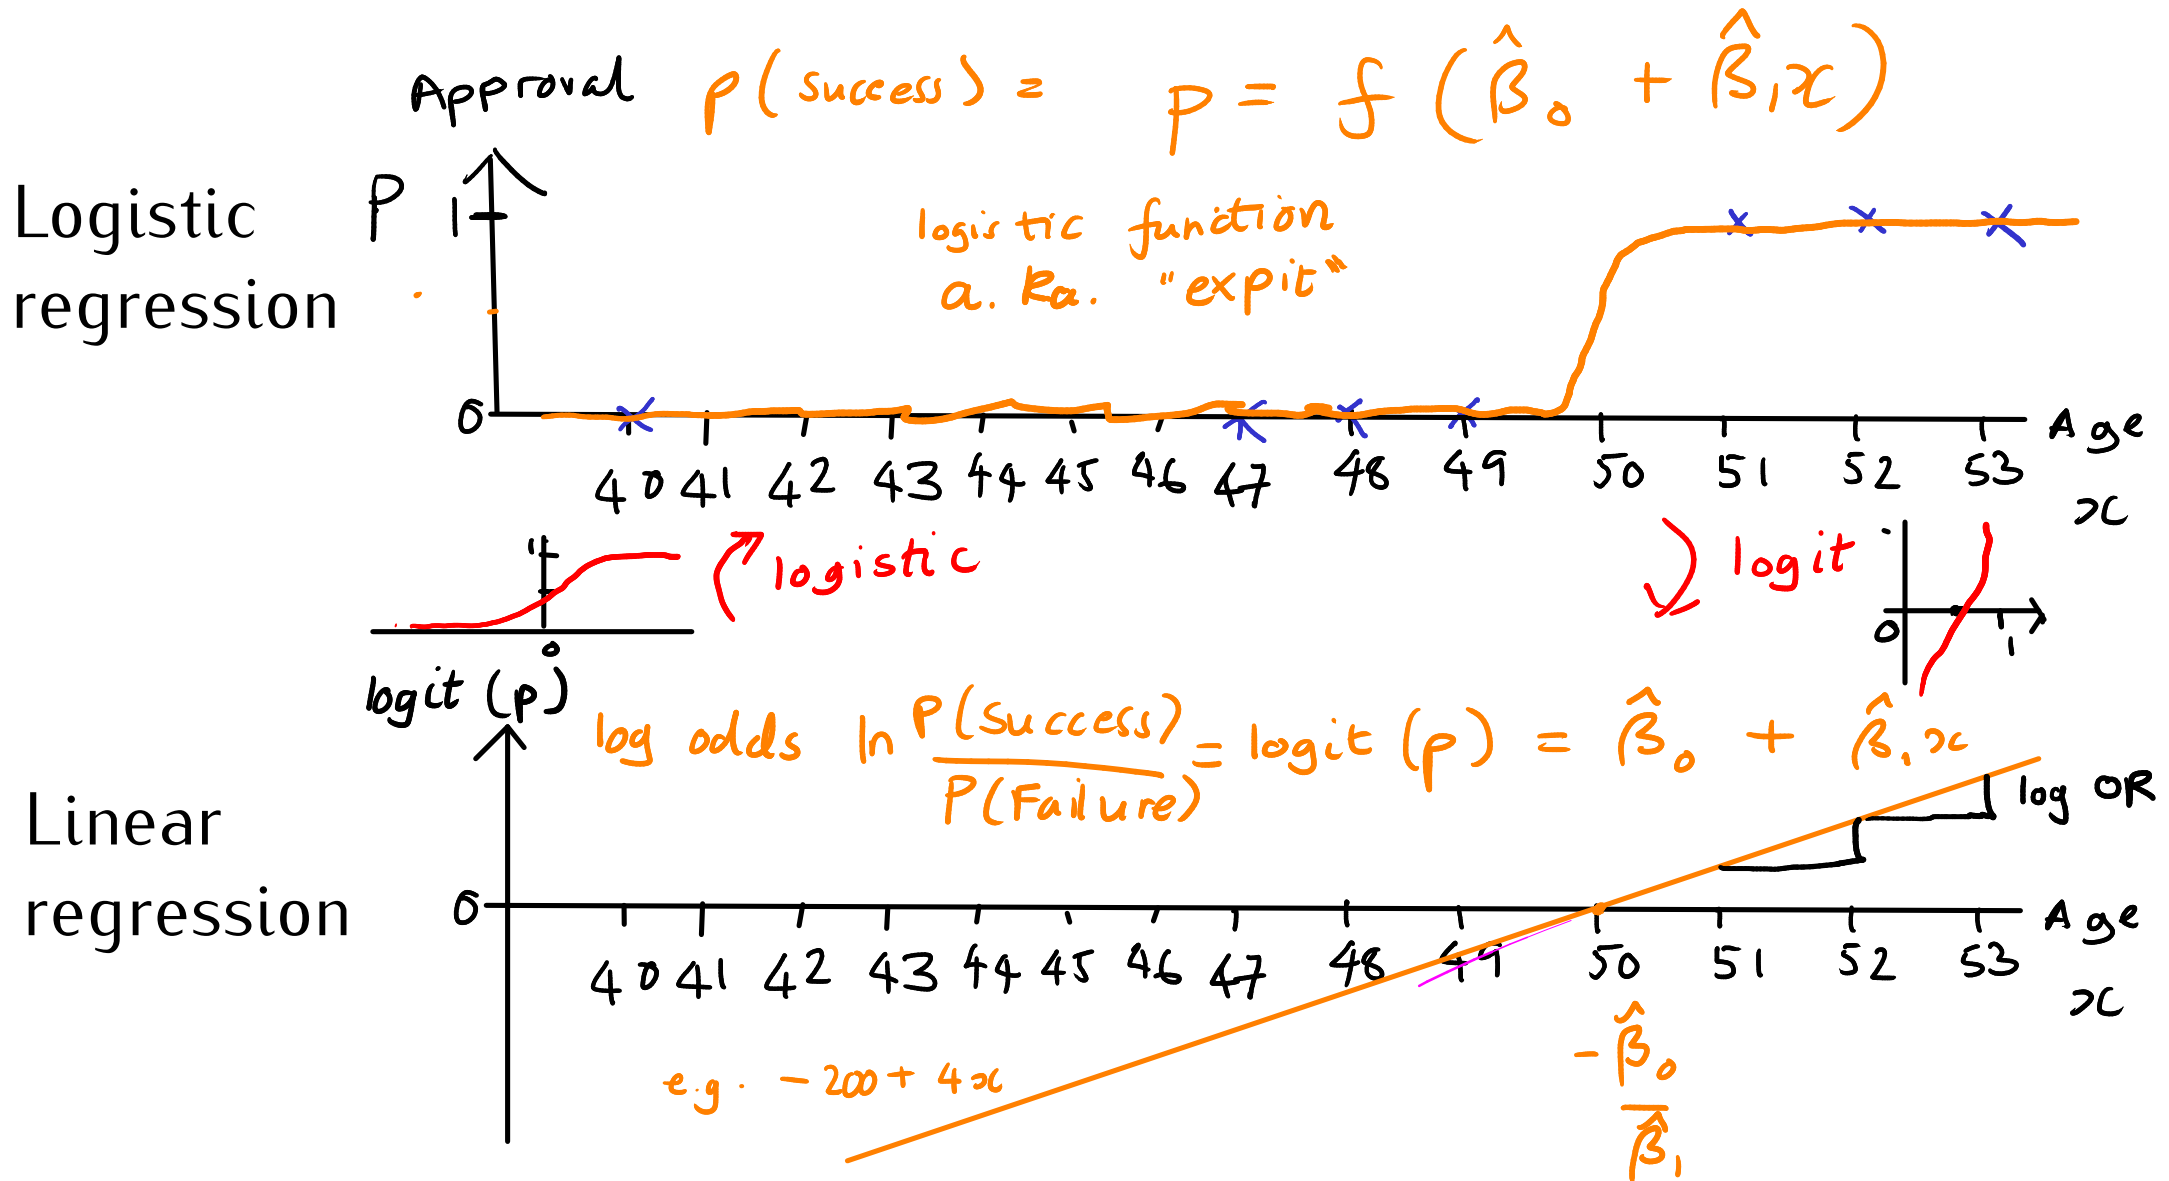 Approval p(success) = p = f(β̂₀ + β̂₁x)
Logistic
regression
P 1
logistic function
a.ka. "expit"
0
Age
40 41 42 43 44 45 46 47 48 49 50 51 52 53
x
1
logistic
logit
0
0 1
logit(p)
log odds ln P(Success)/P(Failure) = logit(p) = β̂₀ + β̂₁x
log OR
Linear
regression
0
Age
40 41 42 43 44 45 46 47 48 49 50 51 52 53
x
e.g. -200+4x
-β̂₀/β̂₁